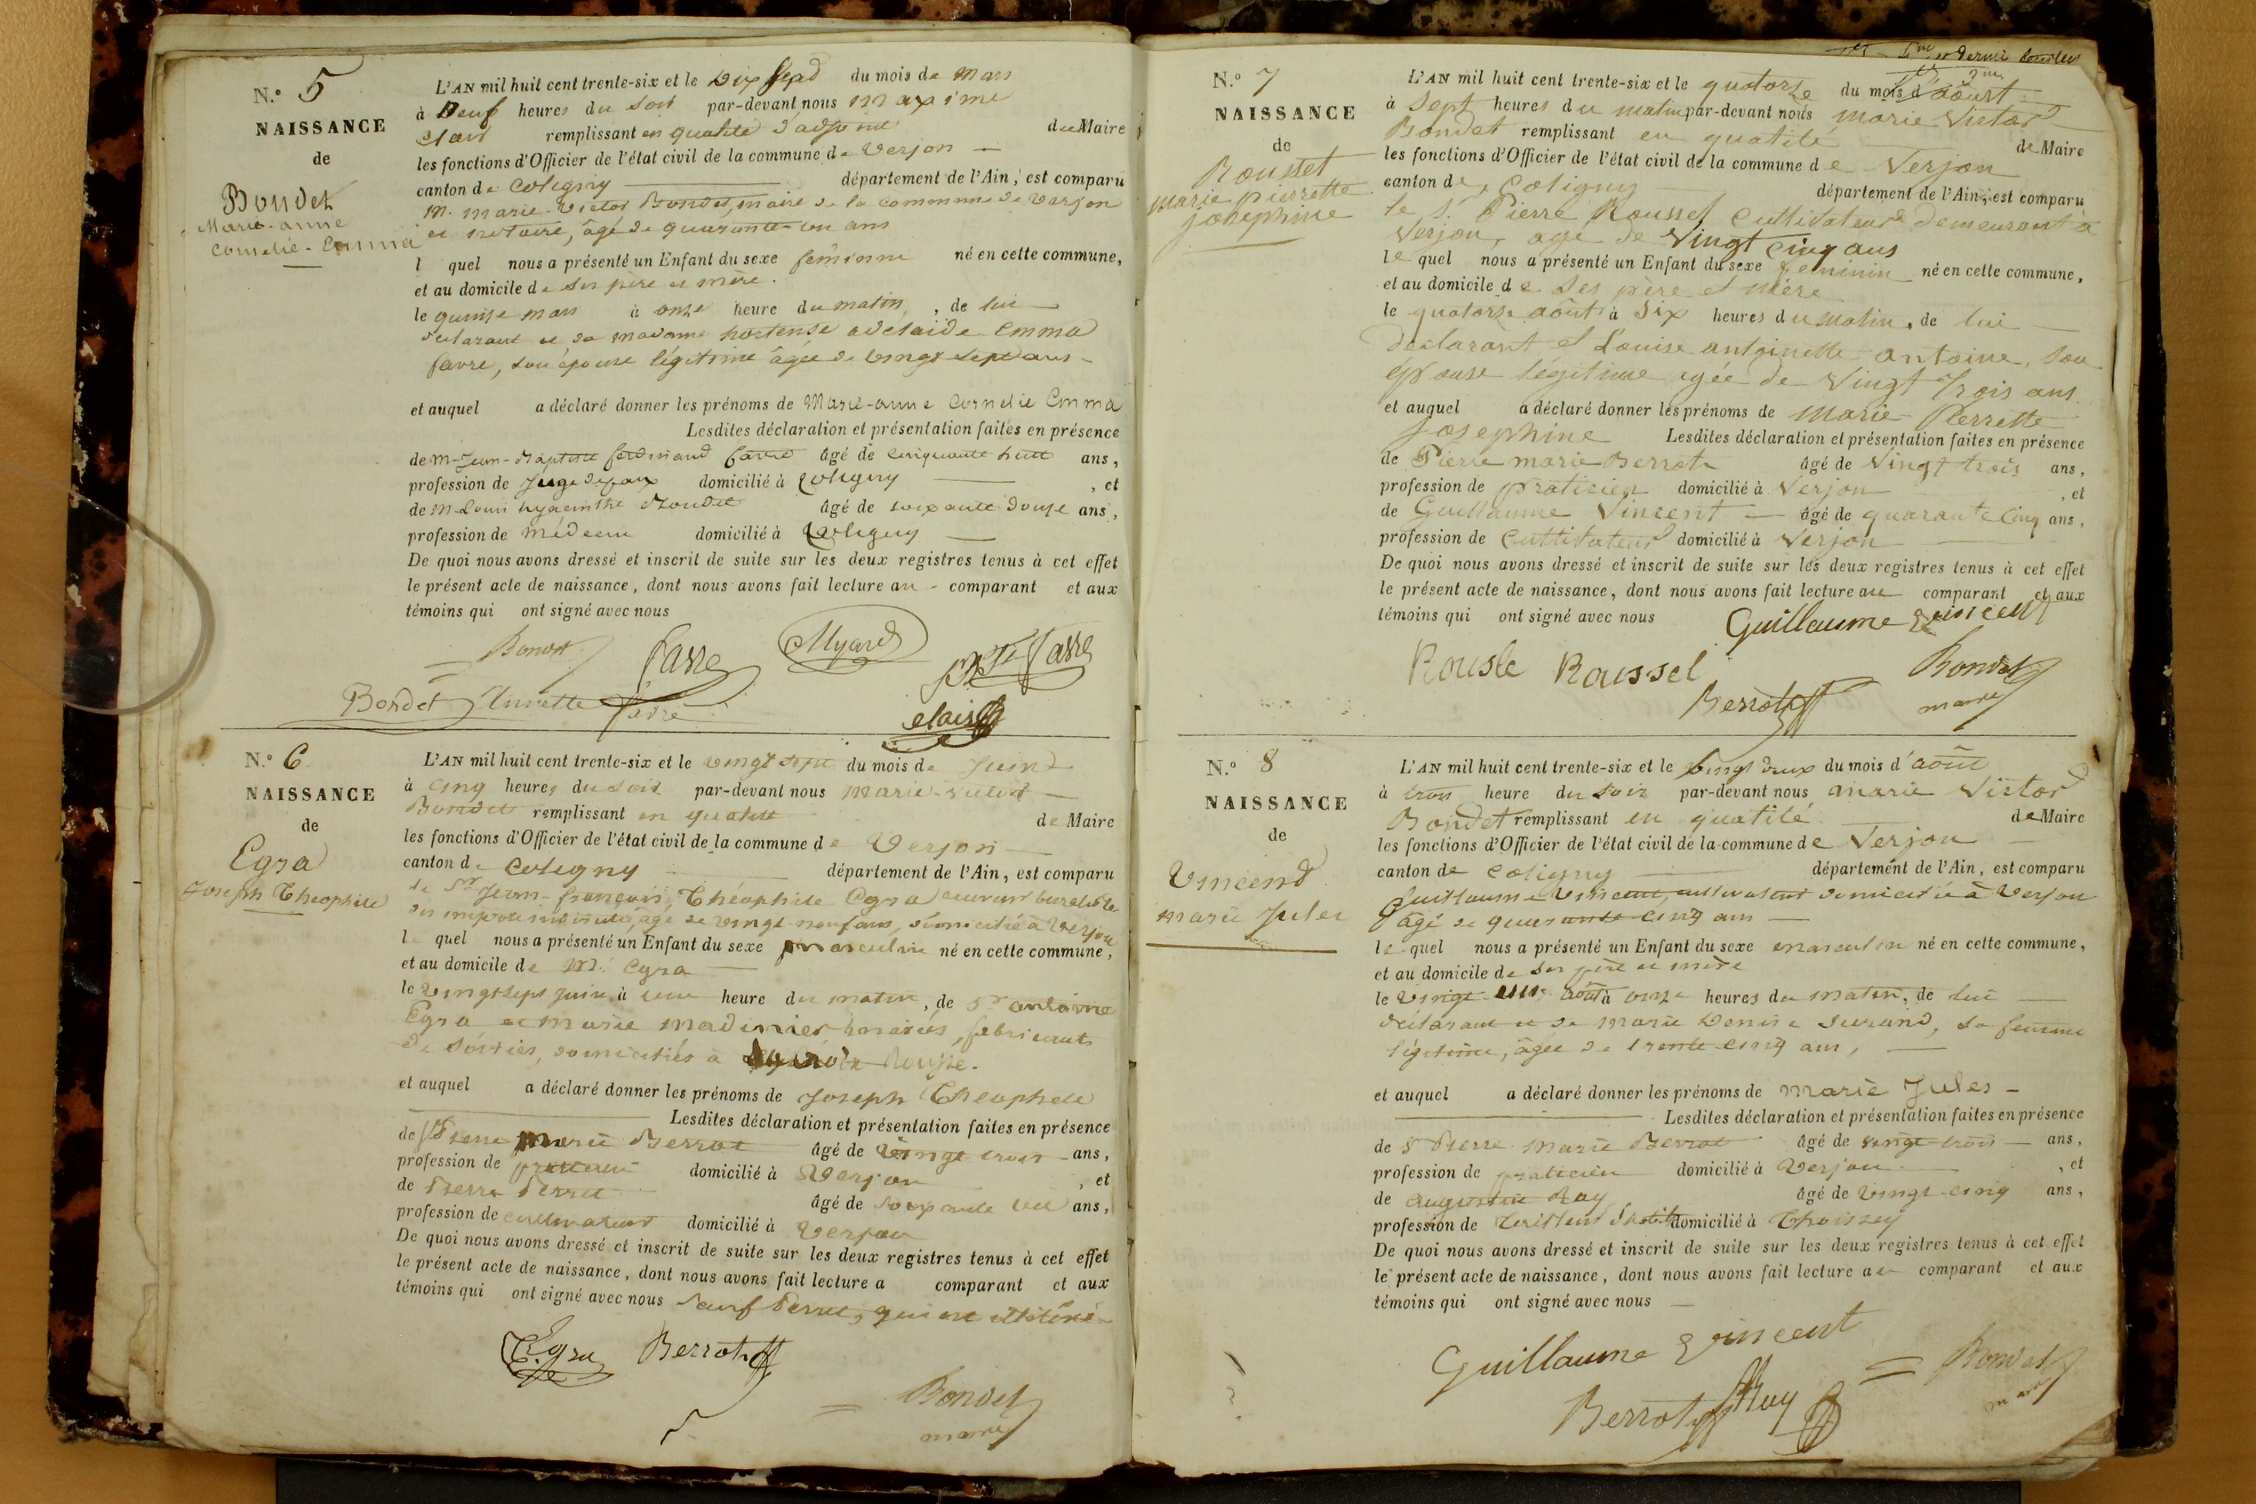 N.° 5
NAISSANCE
de
Bondet
Marie-anne
Cornelie-Emma
L'AN mil huit cent trente-six et le Dix sept du mois de Mars
à Neuf heures du soir par-devant nous maxime
clair remplissant en qualité d'adjoint du Maire
les fonctions d'Officier de l'état civil de la commune de Verjon
canton de Coligny département de l'Ain, est comparu
M. marie-Victor Bondet, maire de la commune de Verjon
et notaire, âgé de quarante-un ans
l quel nous a présenté un Enfant du sexe féminin né en cette commune,
et au domicile de ses père et mère.
le quinze mars à onze heure du matin, de lui
déclarant et de madame hortense adelaide Emma
favre, son épouse légitime âgée de vingt sept ans
et auquel a déclaré donner les prénoms de Marie-anne Cornelie Emma
Lesdites déclaration et présentation faites en présence
de M. Jean-Baptiste ferdinand favre âgé de cinquante huit ans,
profession de Juge de paix domicilié à Coligny, et
de M. Louis hyacinthe Bondet âgé de soixante douze ans,
profession de médecin domicilié à Coligny
De quoi nous avons dressé et inscrit de suite sur les deux registres tenus à cet effet
le présent acte de naissance, dont nous avons fait lecture au comparant et aux
témoins qui ont signé avec nous
Bondet favre Myard favre
Bondet favre
clair
N.° 6
NAISSANCE
de
Egra
Joseph Théophile
L'AN mil huit cent trente-six et le vingt sept du mois de Juin
à cinq heures du soir par-devant nous marie-victor
Bondet remplissant en qualité de Maire
les fonctions d'Officier de l'état civil de la commune de Verjon
canton de Coligny département de l'Ain, est comparu
le Sr Jean-françois Théophile Egra buraliste
des impots indirects, âgé de vingt-neuf ans, domicilié à Verjon
l quel nous a présenté un Enfant du sexe masculin né en cette commune,
et au domicile de Mr. Egra
le vingt sept juin, à une heure du matin, de Sr antoine
Egra et marie madinier mariés, fabricants
de soiries, domiciliés à la Croix Rousse.
et auquel a déclaré donner les prénoms de Joseph Théophile
Lesdites déclaration et présentation faites en présence
de Sr Pierre marie Berrot âgé de vingt trois ans,
profession de praticien domicilié à Verjon, et
de Pierre Perret âgé de soixante ans,
profession de cultivateur domicilié à Verjon
De quoi nous avons dressé et inscrit de suite sur les deux registres tenus à cet effet
le présent acte de naissance, dont nous avons fait lecture a comparant et aux
témoins qui ont signé avec nous sauf Perret, qui est illitéré
Egra Berrot
Bondet
maire
N.° 7
NAISSANCE
de
Rousset
Marie pierrette
joséphine
L'AN mil huit cent trente-six et le quatorze du mois d'août
à Sept heures du matin par-devant nous marie Victor
Bondet remplissant en qualité de Maire
les fonctions d'Officier de l'état civil de la commune de Verjon
canton de Coligny département de l'Ain, est comparu
le S. Pierre Roussel Cultivateur demeurant à
Verjon, agé de Vingt Cinq ans
le quel nous a présenté un Enfant du sexe féminin né en cette commune,
et au domicile de ses père et mère
le quatorze août à Six heures du matin, de lui
déclarant et Louise antoinette antoine, son
épouse légitime agée de Vingt Trois ans
et auquel a déclaré donner les prénoms de Marie Pierrette
Josephine Lesdites déclaration et présentation faites en présence
de Pierre marie Berrot âgé de Vingt trois ans,
profession de praticien domicilié à Verjon, et
de Guillaume Vincent âgé de quarante Cinq ans,
profession de Cultivateur domicilié à Verjon
De quoi nous avons dressé et inscrit de suite sur les deux registres tenus à cet effet
le présent acte de naissance, dont nous avons fait lecture au comparant et aux
témoins qui ont signé avec nous Guillaume Vincent
Rousle Roussel Bondet
Berrot maire
N.° 8
NAISSANCE
de
Vincend
marie Jules
L'AN mil huit cent trente-six et le vingt deux du mois d'août
à trois heure du soir par-devant nous Marie Victor
Bondet remplissant en qualité de Maire
les fonctions d'Officier de l'état civil de la commune de Verjon
canton de Coligny département de l'Ain, est comparu
Guillaume Vincent, cultivateur domicilié à Verjon
âgé de quarante cinq ans
le quel nous a présenté un Enfant du sexe masculin né en cette commune,
et au domicile de ses père et mère
le vingt-un août à onze heures du matin, de lui
déclarant et de marie Denise durand, sa femme
légitime, âgée de trente cinq ans,
et auquel a déclaré donner les prénoms de Marie Jules
Lesdites déclaration et présentation faites en présence
de S Pierre Marie Berrot âgé de vingt trois ans,
profession de praticien domicilié à Verjon, et
de augustin Ray âgé de vingt-cinq ans,
profession de domicilié à Thoissey
De quoi nous avons dressé et inscrit de suite sur les deux registres tenus à cet effet
le présent acte de naissance, dont nous avons fait lecture au comparant et aux
témoins qui ont signé avec nous
Guillaume Vincent Bondet
Berrot Ray maire